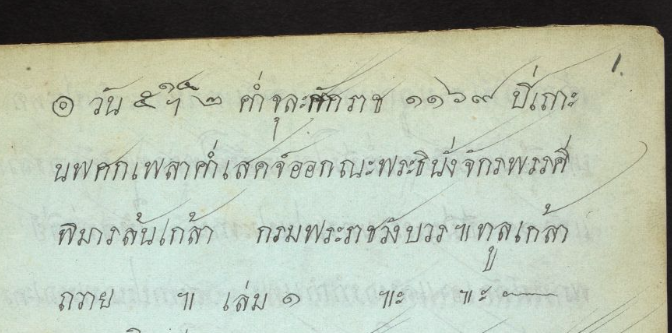 1.
๏ วัน ๕ ฯ ๒ ค่ำจุละศักราช ๑๑๖๙ ปีเถาะ
นพศกเพลาค่ำเสดจ์ออกณะพระธินั่งจักรพรรดิ์
พิมารล้นเกล้า กรมพระราชวังบวร๚ทูลเกล้า
ถวาย ๚ เล่ม ๑ ๚ะ ๚ะ